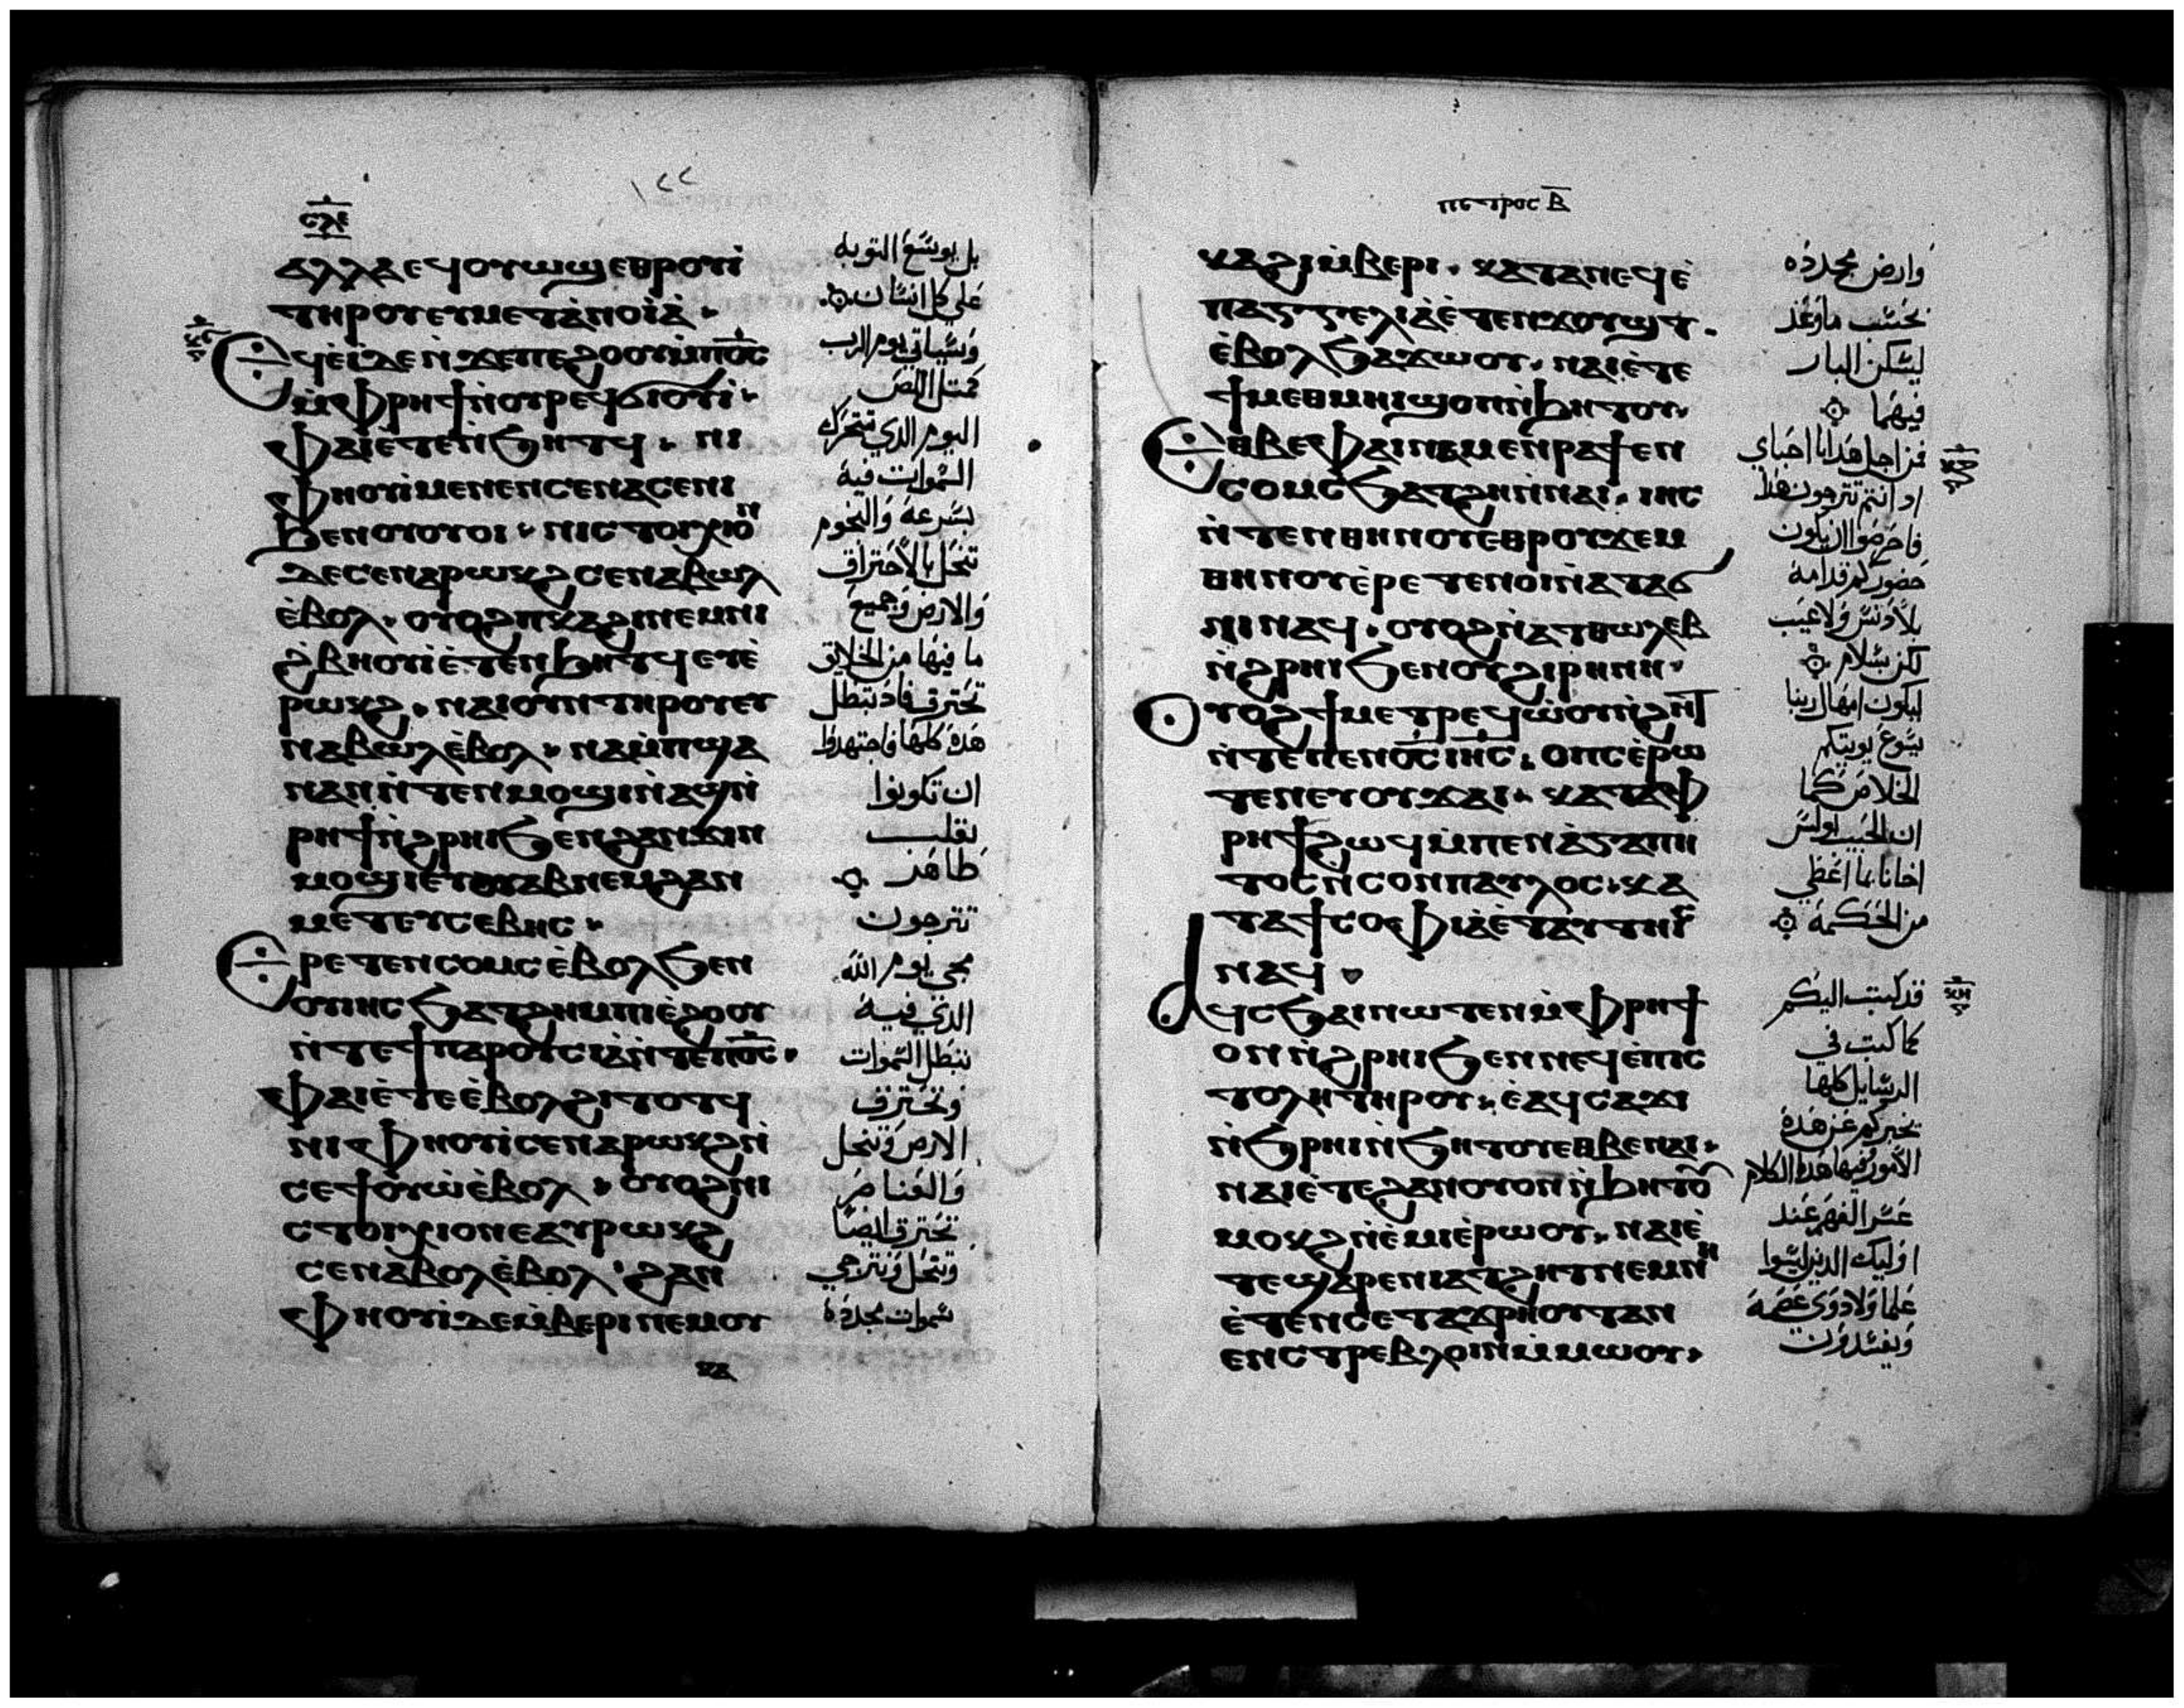 ⲥⲗⲉ
١٢٢
ⲁⲗⲗⲁ ⲉϥⲟⲩⲱϣ ⲉⲑⲣⲟⲩⲓ̀
ⲧⲏⲣⲟⲩ ⲉⲩⲙⲉⲧⲁ̀ⲛⲟⲓⲁ̀
ⲉϥⲉ̀ⲓ̀ ⲇⲉ ⲛ̀ϫⲉ ⲡⲉϩⲟⲟⲩ ⲙ̀ⲡⲟ̅ⲥ̅
ⲙ̀ⲫⲣⲏϯ ⲛ̀ⲟⲩⲣⲉϥϭⲓⲟⲩⲓ̀
ⲫⲁⲓ ⲉ̀ⲧⲉ ⲛ̀ϧⲏⲧϥ ⲛⲓ
ⲫⲏⲟⲩⲓ̀ ⲙⲉⲛ ⲉⲛⲥⲉⲛⲁⲥⲉⲛⲓ
ϧⲉⲛ ⲟⲩⲟⲩⲟⲓ ⲛⲓⲥⲧⲟⲓⲭⲓⲟⲛ
ⲇⲉ ⲥⲉⲛⲁⲣⲱⲕϩ ⲥⲉⲛⲁⲃⲱⲗ
ⲉ̀ⲃⲟⲗ ⲟⲩⲟϩ ⲡⲕⲁϩⲓ ⲛⲉⲙ ⲛⲓ
ϩ̀ⲃⲏⲟⲩⲓ̀ ⲉ̀ⲧⲉⲛϧⲏⲧϥ ⲉⲩⲉ̀
ⲣⲱⲕϩ ⲛⲁⲓ ⲟⲩⲛ ⲧⲏⲣⲟⲩ ⲉⲩ
ⲛⲁⲃⲱⲗ ⲉ̀ⲃⲟⲗ ⲛⲁⲙ̀ⲡϣⲁ
ⲛⲁⲛ ⲛ̀ⲧⲉⲛⲙⲟϣⲓ ⲛ̀ⲁϣ ⲛ̀
ⲣⲏϯ ⲛ̀ϩⲣⲏⲓ ϧⲉⲛ ϩⲁⲛϫⲓⲛ
ⲙⲟϣⲓ ⲉⲩⲟⲩⲁⲃ ⲛⲉⲙ ϩⲁⲛ
ⲙⲉⲧⲉⲩⲥⲉⲃⲏⲥ
ⲉⲣⲉⲧⲉⲛⲥⲟⲙⲥ ⲉ̀ⲃⲟⲗ ϧⲉⲛ
ⲟⲩⲓⲏⲥ ϧⲁⲧϩⲏ ⲙⲡⲓⲉ̀ϩⲟⲟⲩ
ⲛ̀ⲧⲉ ϯⲡⲁⲣⲟⲩⲥⲓⲁ̀ ⲛ̀ⲧⲉ ⲡⲟ̅ⲥ̅
ⲫⲁⲓ ⲉ̀ⲧⲉ ⲉ̀ⲃⲟⲗϩⲓⲧⲟⲧϥ
ⲛⲓⲫⲏⲟⲩⲓ̀ ⲥⲉⲛⲁⲣⲱⲕϩ ⲛ̀
ⲥⲉϯⲟⲩⲱ̀ ⲉ̀ⲃⲟⲗ ⲟⲩⲟϩ ⲛⲓ
ⲥⲧⲟⲓⲭⲓⲟⲛ ⲉⲁⲩⲣⲱⲕϩ
ⲥⲉⲛⲁⲃⲟⲗ ⲉ̀ⲃⲟⲗ ϩⲁⲛ
ⲫⲏⲟⲩⲓ̀ ⲇⲉ ⲙ̀ⲃⲉⲣⲓ ⲛⲉⲙ ⲟⲩ
ⲕⲁ
بل يوسع التوبه
على كل انسان
وسياتي يوم الرب
كمثل اللص
اليوم الذي تتحرك
السموات فيه
بسرعة والنجوم
تنحل بالاحتراق
والارض وجميع
ما فيها من الخلايق
تحترق فاذ تبطل
هذه كلها فاجتهدوا
ان تكونوا
بقلب
طاهر
تترجون
مجى يوم الله
الذي فيه
تبطل السموات
وتحترق
الارض وتنحل
والعناصر
تحترق ايضا
وتنحل ونترجي
سموات مجدده
ⲡⲉⲧⲣⲟⲥ ⲃ̅
ⲕⲁϩⲓ ⲙ̀ⲃⲉⲣⲓ ⲕⲁⲧⲁ ⲛⲉϥⲉ̀
ⲡⲁⲅⲅⲉⲗⲓⲁ̀ ⲉ̀ⲧⲉⲛϫⲟⲩϣⲧ
ⲉ̀ⲃⲟⲗ ϧⲁϫⲱⲟⲩ ⲛⲁⲓ ⲉ̀ⲧⲉ
ϯⲙⲉⲑⲙⲏⲓ ϣⲟⲡ ⲛ̀ϧⲏⲧⲟⲩ
ⲉⲑⲃⲉ ⲫⲁⲓ ⲛⲁⲙⲉⲛⲣⲁϯ ⲉⲛ
ⲥⲟⲙⲥ ϧⲁⲧϩⲏ ⲛ̀ⲛⲁⲓ ⲓⲏⲥ
ⲛ̀ⲧⲉⲛⲑⲏⲛⲟⲩ ⲉⲑⲣⲟⲩϫⲉⲙ
ⲑⲏⲛⲟⲩ ⲉ̀ⲣⲉⲧⲉⲛⲟⲓ ⲛ̀ⲁⲧⲁϭ
ⲛⲓ ⲛⲁϥ ⲟⲩⲟϩ ⲛ̀ⲁⲧⲑⲱⲗⲉⲃ
ⲛ̀ϩⲣⲏⲓ ϧⲉⲛ ⲟⲩϩⲓⲣⲏⲛⲏ
ⲟⲩⲟϩ ϯⲙⲉⲧⲣⲉϥⲱ̀ⲟⲩⲛ̀ϩⲏⲧ
ⲛ̀ⲧⲉ ⲡⲉⲛⲟ̅ⲥ̅ ⲓⲏ̅ⲥ̅ ⲟⲡⲥ ⲉ̀ⲣⲱ
ⲧⲉⲛ ⲉⲩⲟⲩϫⲁⲓ ⲕⲁⲧⲁ ⲫ
ⲣⲏϯ ϩⲱϥ ⲙ̀ⲡⲉⲛⲁ̀ⲅⲁⲡⲏ
ⲧⲟⲥ ⲛ̀ⲥⲟⲛ ⲡⲁⲩⲗⲟⲥ ⲕⲁ
ⲧⲁ ϯⲥⲟⲫⲓⲁ̀ ⲉ̀ⲧⲁⲩⲧⲏⲓⲥ
ⲛⲁϥ
ⲁϥⲥϧⲁⲓ ⲛⲱⲧⲉⲛ ⲙ̀ⲫⲣⲏϯ
ⲟⲛ ⲛ̀ϩⲣⲏⲓ ϧⲉⲛ ⲛⲉϥⲉ̀ⲡⲓⲥ
ⲧⲟⲗⲏ ⲧⲏⲣⲟⲩ ⲉ̀ⲁϥⲥⲁϫⲓ
ⲛ̀ϧⲣⲏⲓ ⲛ̀ϧⲏⲧⲟⲩ ⲉⲑⲃⲉ ⲛⲁⲓ
ⲛⲁⲓ ⲉ̀ⲧⲉ ϩⲁⲛⲟⲩⲟⲛ ⲛ̀ϧⲏⲧⲟⲩ
ⲙⲟⲕϩ ⲛ̀ⲉ̀ⲙⲓ ⲉ̀ⲣⲱⲟⲩ ⲛⲁⲓ ⲉ̀
ⲧⲉ ϣⲁⲣⲉ ⲛⲓⲁⲧϩⲏⲧ ⲛⲉⲙ ⲛⲏ
ⲉ̀ⲧⲉⲛⲥⲉⲧⲁϫⲣⲏⲟⲩⲧ ⲁⲛ
ⲉⲛⲥⲧⲣⲉⲃⲗⲟⲓⲛ ⲙ̀ⲙⲱⲟⲩ
وارض مجدده
بحسب ما وعد
ليسكن البار
فيهما
فمن اجل هذا يا احباي
اذ انتم تترجون هذا
فاحرصوا ان يكون
حضوركم قدامه
بلا دنس ولا عيب
لكن بسلام
ليكون امهال ربنا
يسوع يوييكم
الخلاص كما
ان الحبيب بولس
اخانا بما اعطي
من الحكمة
قد كتب اليكم
كما كتب في
الرسايل كلها
يخبركم عن هذه
الامور فيها هذا الكلام
عسر الفهم عند
اوليك الذين ليسوا
علما ولا ذوى عصمة
ويفسدون